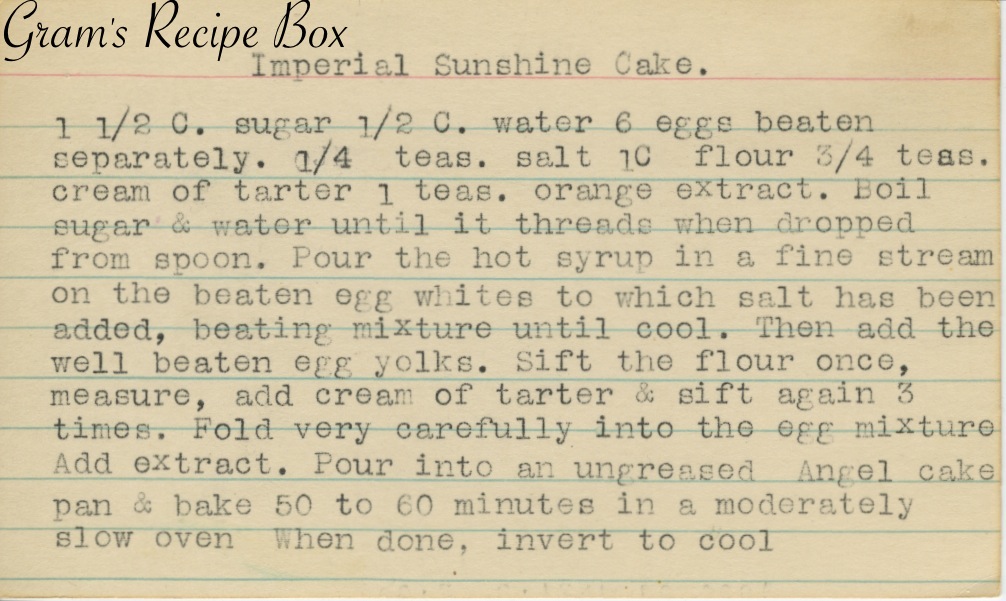 Gram's Recipe Box
Imperial Sunshine Cake.
1 1/2 C. sugar 1/2 C. water 6 eggs beaten
separately. 1/4 teas. salt 1C flour 3/4 teas.
cream of tarter 1 teas. orange extract. Boil
sugar & water until it threads when dropped
from spoon. Pour the hot syrup in a fine stream
on the beaten egg whites to which salt has been
added, beating mixture until cool. Then add the
well beaten egg yolks. Sift the flour once,
measure, add cream of tarter & sift again 3
times. Fold very carefully into the egg mixture
Add extract. Pour into an ungreased Angel cake
pan & bake 50 to 60 minutes in a moderately
slow oven When done, invert to cool